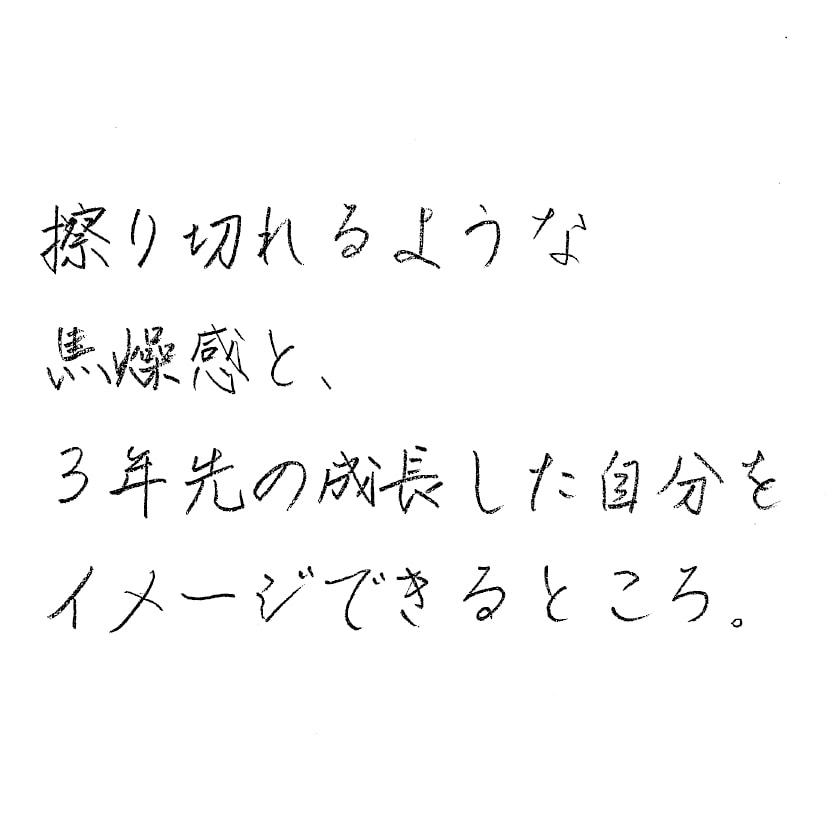 擦り切れるような
焦燥感と、
3年先の成長した自分を
イメージできるところ。